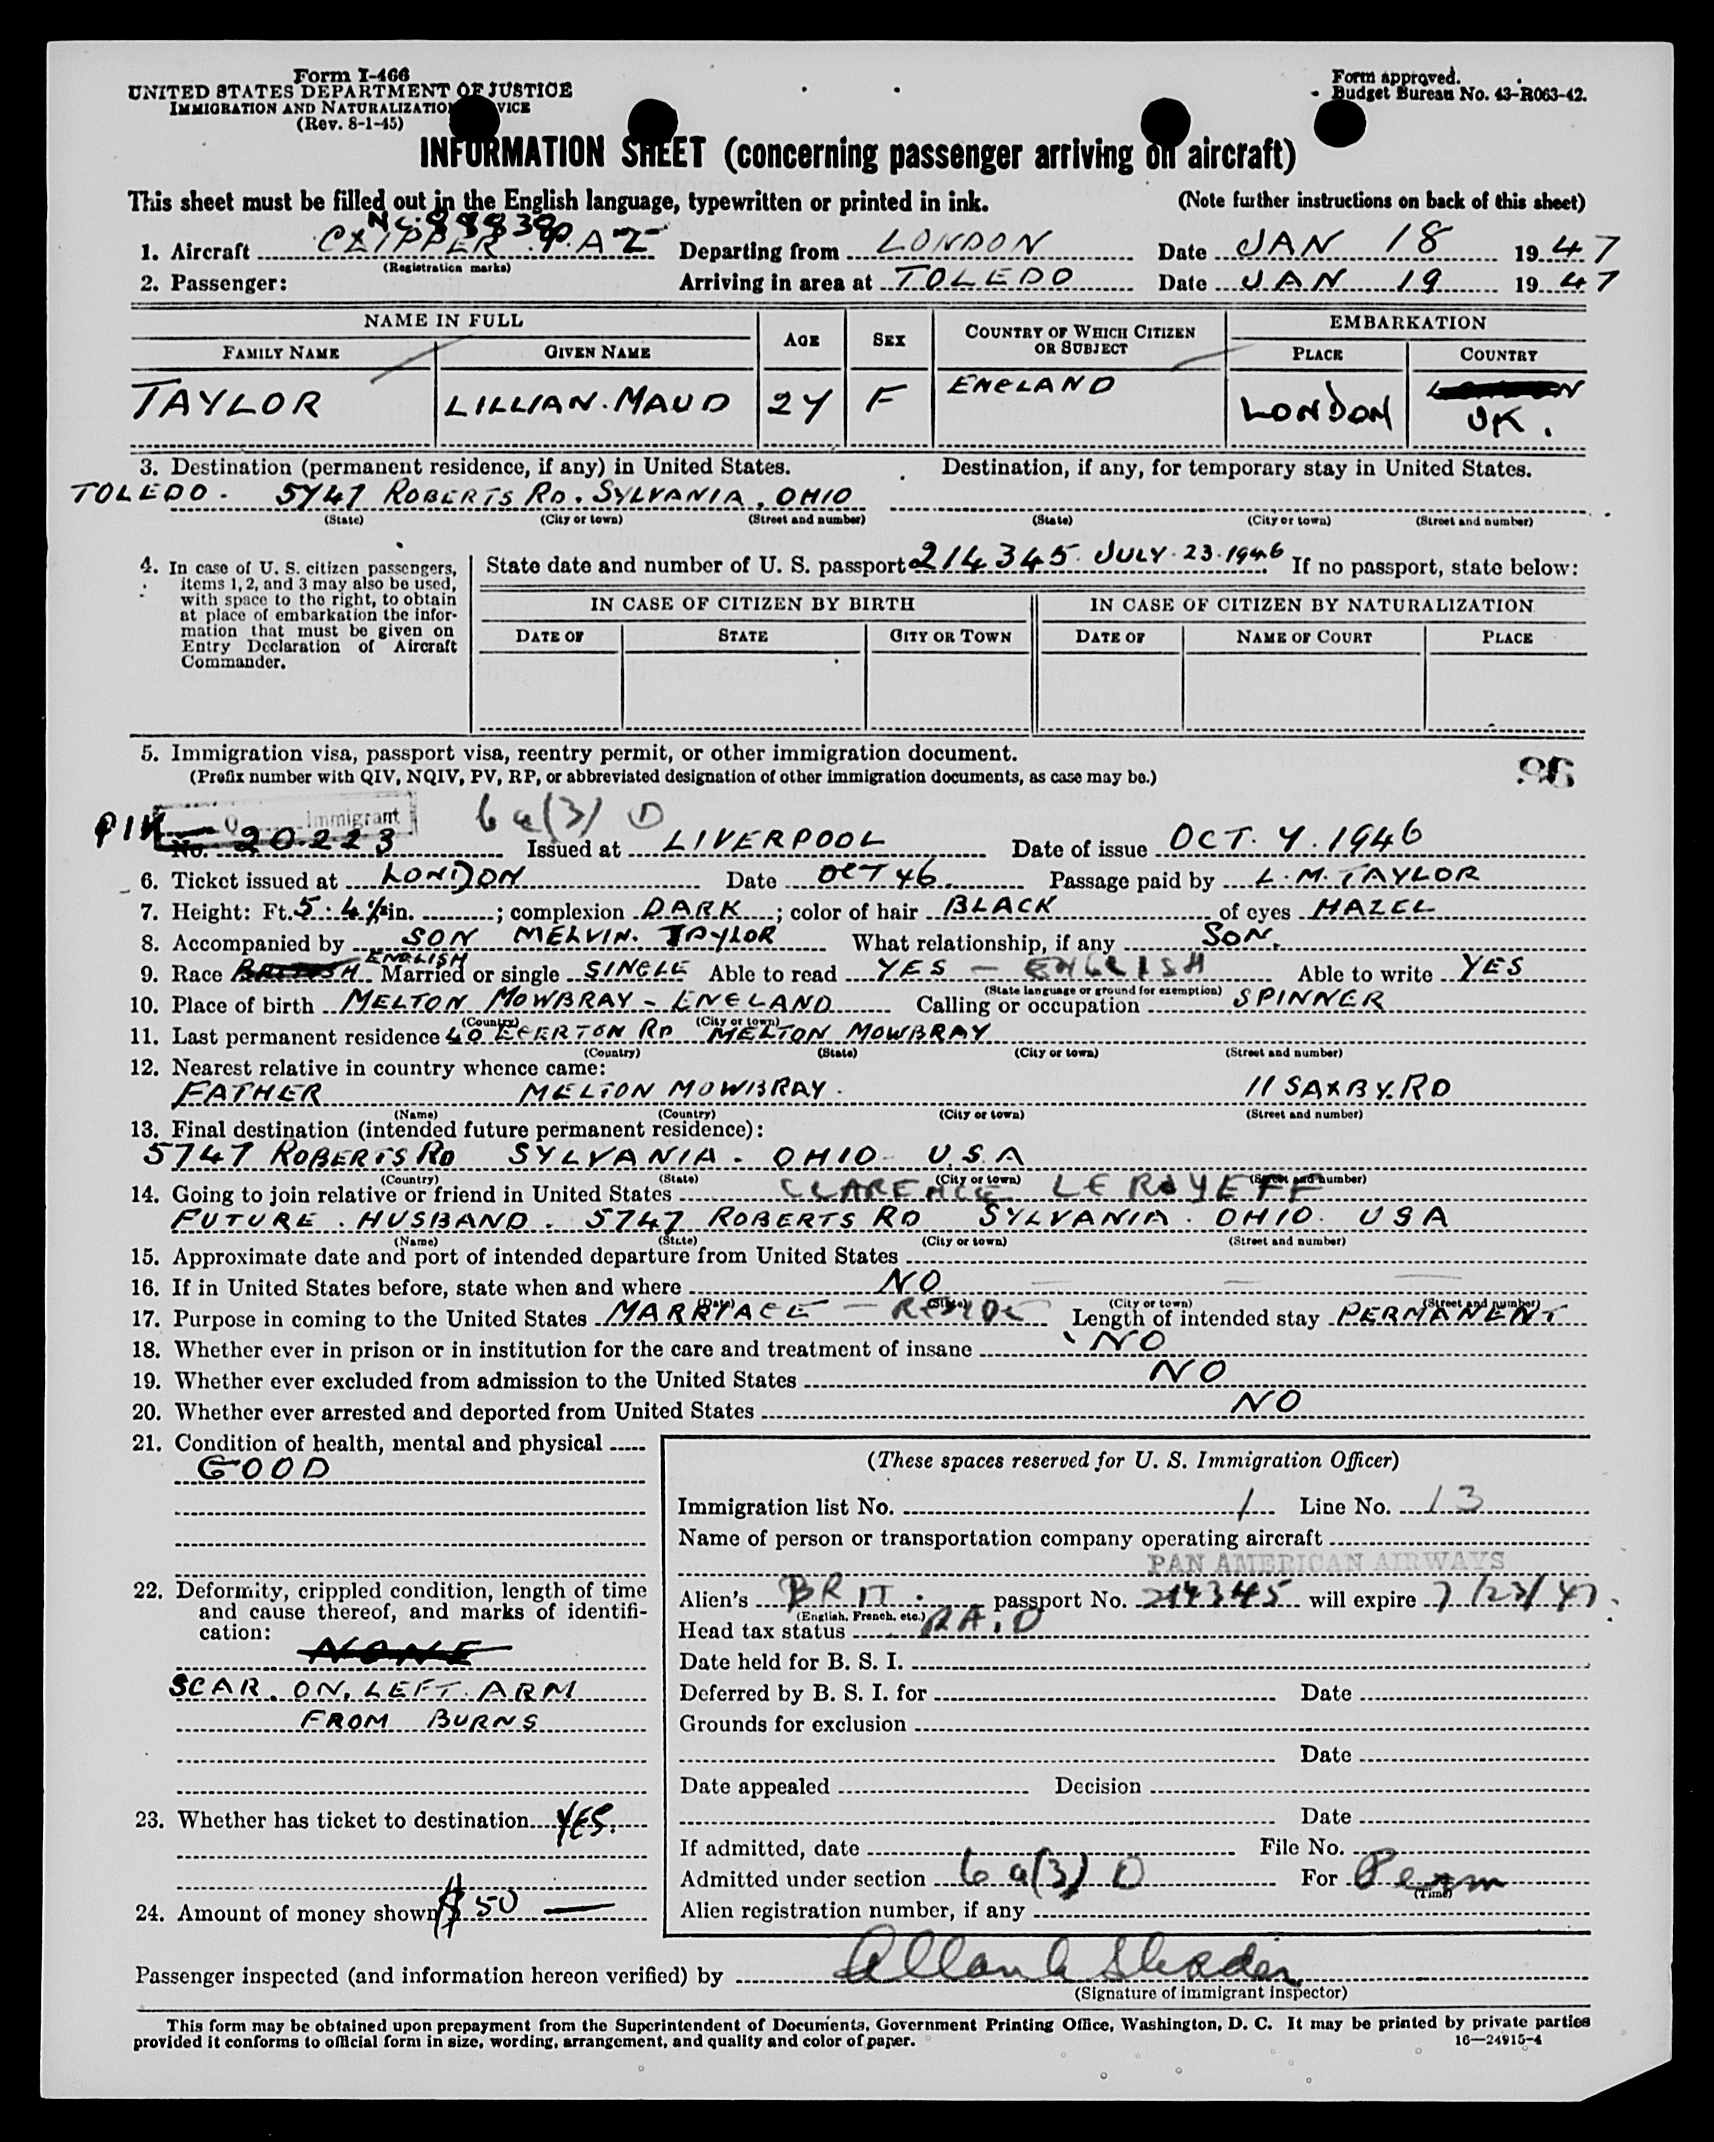 Form I-466
UNITED STATES DEPARTMENT OF JUSTICE
IMMIGRATION AND NATURALIZATION SERVICE
(Rev. 8-1-45)
Form approved.
Budget Bureau No. 43-R063-42.
INFORMATION SHEET (concerning passenger arriving on aircraft)
This sheet must be filled out in the English language, typewritten or printed in ink. (Note further instructions on back of this sheet)
1. Aircraft CLIPPER Departing from LONDON Date JAN 18 1947
(Registration marks)
2. Passenger: Arriving in area at TOLEDO Date JAN 19 1947
NAME IN FULL AGE SEX COUNTRY OF WHICH CITIZEN OR SUBJECT EMBARKATION
FAMILY NAME GIVEN NAME PLACE COUNTRY
TAYLOR LILLIAN. MAUD 24 F ENGLAND LONDON UK.
3. Destination (permanent residence, if any) in United States. Destination, if any, for temporary stay in United States.
TOLEDO. 5747 ROBERTS RD. SYLVANIA, OHIO
(State) (City or town) (Street and number) (State) (City or town) (Street and number)
4. In case of U. S. citizen passengers, items 1, 2, and 3 may also be used, with space to the right, to obtain at place of embarkation the information that must be given on Entry Declaration of Aircraft Commander.
State date and number of U. S. passport 214345. JULY. 23. 1946 If no passport, state below:
IN CASE OF CITIZEN BY BIRTH IN CASE OF CITIZEN BY NATURALIZATION
DATE OF STATE CITY OR TOWN DATE OF NAME OF COURT PLACE
5. Immigration visa, passport visa, reentry permit, or other immigration document.
(Prefix number with QIV, NQIV, PV, RP, or abbreviated designation of other immigration documents, as case may be.)
Q Immigrant 6 a(3) D
No. 20223 Issued at LIVERPOOL Date of issue OCT. 4. 1946
6. Ticket issued at LONDON Date OCT 46. Passage paid by L. M. TAYLOR
7. Height: Ft. 5. 4 1/2 in. ; complexion DARK ; color of hair BLACK of eyes HAZEL
8. Accompanied by SON MELVIN. TAYLOR What relationship, if any SON.
9. Race ENGLISH Married or single SINGLE Able to read YES - ENGLISH Able to write YES
(State language or ground for exemption)
10. Place of birth MELTON MOWBRAY - ENGLAND Calling or occupation SPINNER
(Country) (City or town)
11. Last permanent residence 40 EGERTON RD MELTON MOWBRAY
(Country) (State) (City or town) (Street and number)
12. Nearest relative in country whence came:
FATHER MELTON MOWBRAY. 11 SAXBY. RD
(Name) (Country) (City or town) (Street and number)
13. Final destination (intended future permanent residence):
5747 ROBERTS RD SYLVANIA. OHIO U.S.A
(Country) (State) (City or town) (Street and number)
14. Going to join relative or friend in United States CLARENCE LEROY EFF
FUTURE. HUSBAND. 5747 ROBERTS RD SYLVANIA. OHIO. USA
(Name) (State) (City or town) (Street and number)
15. Approximate date and port of intended departure from United States
16. If in United States before, state when and where NO
(Date) (State) (City or town) (Street and number)
17. Purpose in coming to the United States MARRYAGE - RESIDE Length of intended stay PERMANENT
18. Whether ever in prison or in institution for the care and treatment of insane NO
19. Whether ever excluded from admission to the United States NO
20. Whether ever arrested and deported from United States NO
21. Condition of health, mental and physical
GOOD
22. Deformity, crippled condition, length of time and cause thereof, and marks of identification:
NONE
SCAR. ON. LEFT. ARM
FROM BURNS
23. Whether has ticket to destination YES.
24. Amount of money shown $50 —
(These spaces reserved for U. S. Immigration Officer)
Immigration list No. 1 Line No. 13
Name of person or transportation company operating aircraft
PAN AMERICAN AIRWAYS
Alien's BRIT. passport No. 214345 will expire 7/23/47.
(English, French, etc.)
Head tax status
Date held for B. S. I.
Deferred by B. S. I. for Date
Grounds for exclusion
Date
Date appealed Decision
Date
If admitted, date File No.
Admitted under section 6 a(3) D For Perm
(Time)
Alien registration number, if any
Passenger inspected (and information hereon verified) by
(Signature of immigrant inspector)
This form may be obtained upon prepayment from the Superintendent of Documents, Government Printing Office, Washington, D. C. It may be printed by private parties
provided it conforms to official form in size, wording, arrangement, and quality and color of paper. 16—24915-4